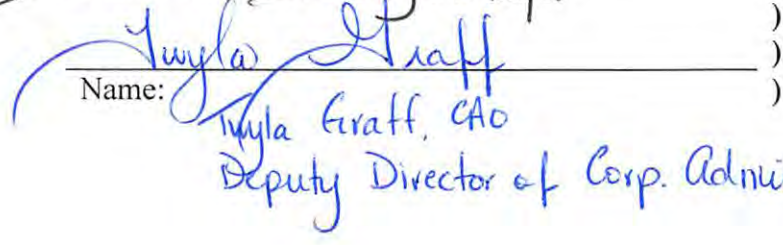 )
Twyla Graff )
Name: )
Twyla Graff, CAO
Deputy Director of Corp. Admi